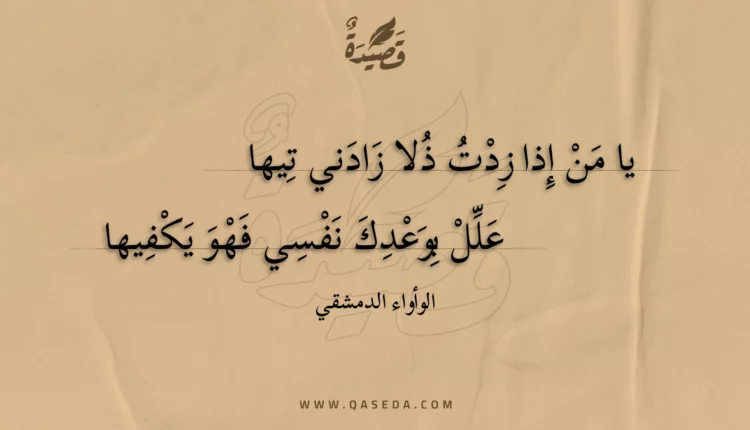 قَصِيدَةٌ
يا مَنْ إِذا زِدْتُ ذُلا زَادَني تِيها
عَلِّلْ بِوَعْدِكَ نَفْسِي فَهْوَ يَكْفِيها
الوأواء الدمشقي
WWW.QASEDA.COM